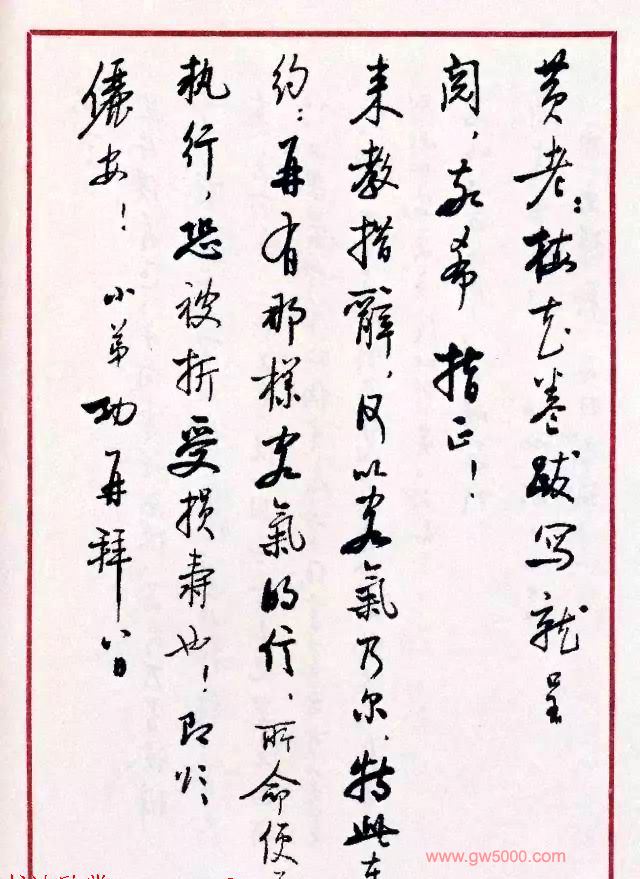 黄老：梅花卷跋写就呈
阅，敬希指正！
来教措辞，何以客气乃尔，特此
约：再有那样客氣的信，所命便
执行，恐被折受损寿也！即颂
俪安！小弟功再拜 八日
www.gw5000.com